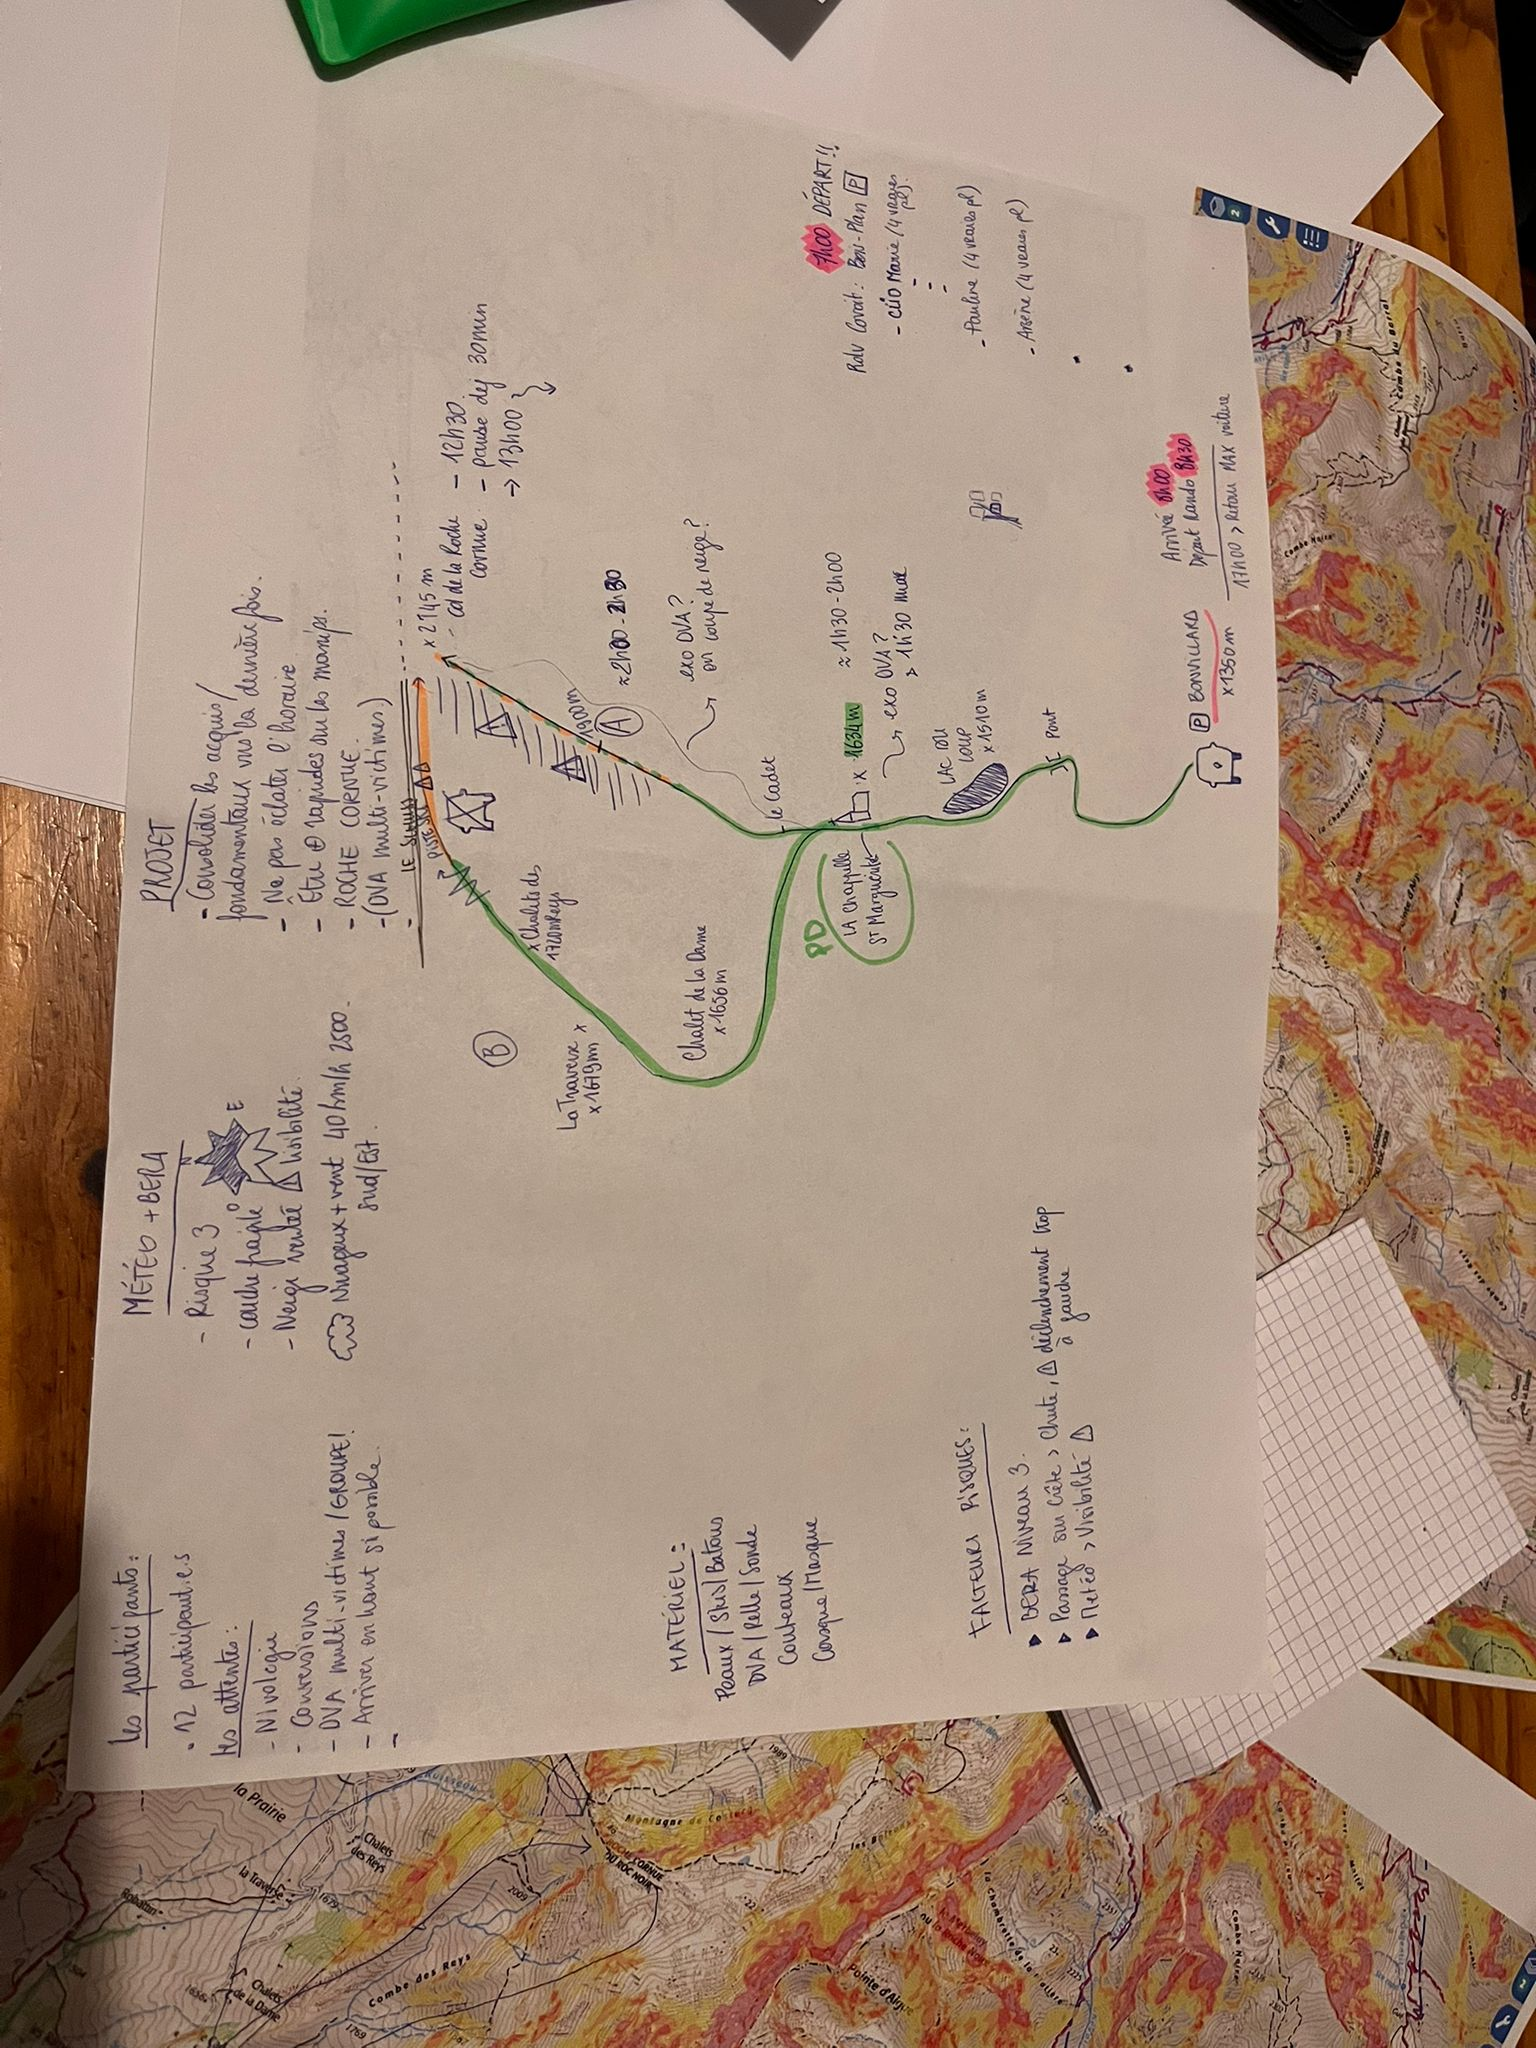 Les participants :
• 12 participant.e.s
les attentes :
- Nivologie
- Conversions
- DVA multi-victimes / GROUPE !
- Arriver en haut si possible
-
MÉTÉO + BERA
- Risque 3
N
E
O
- couche fragile
- Neige ventée ⚠ lisibilité.
Nuageux + vent 40 km/h 2500.
Sud/Est.
PROJET
- Consolider les acquis /
fondamentaux vus la dernière fois.
- Ne pas éclater l'horaire
- Être ⊕ rapides sur les manips.
- ROCHE CORNUE.
- (DVA multi-victimes)
-
PISTE SKI
x 2145 m
- Col de la Roche
Cornue.
- 12h30.
- pause dej 30min
→ 13h00
1900m
A
≈ 2h00 - 2h30
exo DVA ?
ou coupe de neige ?
B
x Chalets des
1720m Reys
La Traverse x
x 1679m
Chalet de la Dame
x 1656 m
le Cadet
PD
LA Chappelle
St Marguerite
x 1634m
≈ 1h30 - 2h00
exo DVA ?
> 1h30 max
LAC DU
LOUP
x 1510m
Pont
P BONVILLARD
x 1350m
Arrivée 8h00
Départ Rando 8h30
17h00 > Retour MAX voiture
7h00 DÉPART !!
Rdv Covoit : Bon-Plan P
- CLIO Marie (4 vraies
pl).
- Pauline (4 vraies pl)
- Arsène (4 vraies pl)
MATÉRIEL :
Peaux / Skis / Batons
DVA / Pelle / Sonde
Couteaux
Casque / Masque
FACTEURS RISQUES :
▶ BERA NIVEAU 3.
▶ Passage sur Crête > Chute, ⚠ déclenchement trop
à gauche
▶ Météo > Visibilité ⚠
la Prairie
Ruisseau
Chalets
des Reys
la Traverse
1679
2009
1989
Chalets
de la Dame
1656
Combe des Reys
1769
DU ROC NOIR
Pointe d'Aigue
Combe Noire
Combe du Barral
2